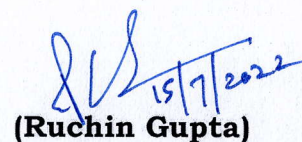 15/7/2022
(Ruchin Gupta)